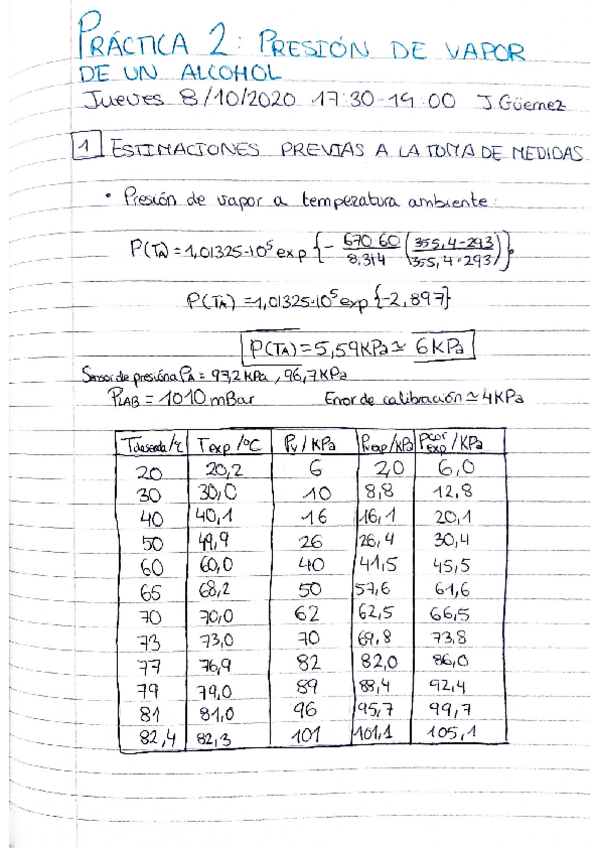 PRÁCTICA 2: PRESIÓN DE VAPOR
DE UN ALCOHOL
Jueves 8/10/2020 17:30-19:00 J Güemez
1 ESTIMACIONES PREVIAS A LA TOMA DE MEDIDAS
• Presión de vapor a temperatura ambiente:
P(TA) = 1,01325·10⁵ exp {- 670 60 / 8,314 (355,4-293 / 355,4·293)}
P(TA) = 1,01325·10⁵ exp {-2,897}
P(TA) = 5,59 KPa ≃ 6 KPa
Sensor de presión PA = 97,2 kPa, 96,7 KPa
PLAB = 1010 mBar Error de calibración ≃ 4KPa
Tdeseada/ºC Texp/ºC Pv/KPa Pvexp/KPa Pcorexp/KPa
20 20,2 6 2,0 6,0
30 30,0 10 8,8 12,8
40 40,1 16 16,1 20,1
50 49,9 26 26,4 30,4
60 60,0 40 41,5 45,5
65 68,2 50 57,6 61,6
70 70,0 62 62,5 66,5
73 73,0 70 69,8 73,8
77 76,9 82 82,0 86,0
79 79,0 89 88,4 92,4
81 81,0 96 95,7 99,7
82,4 82,3 101 101,1 105,1